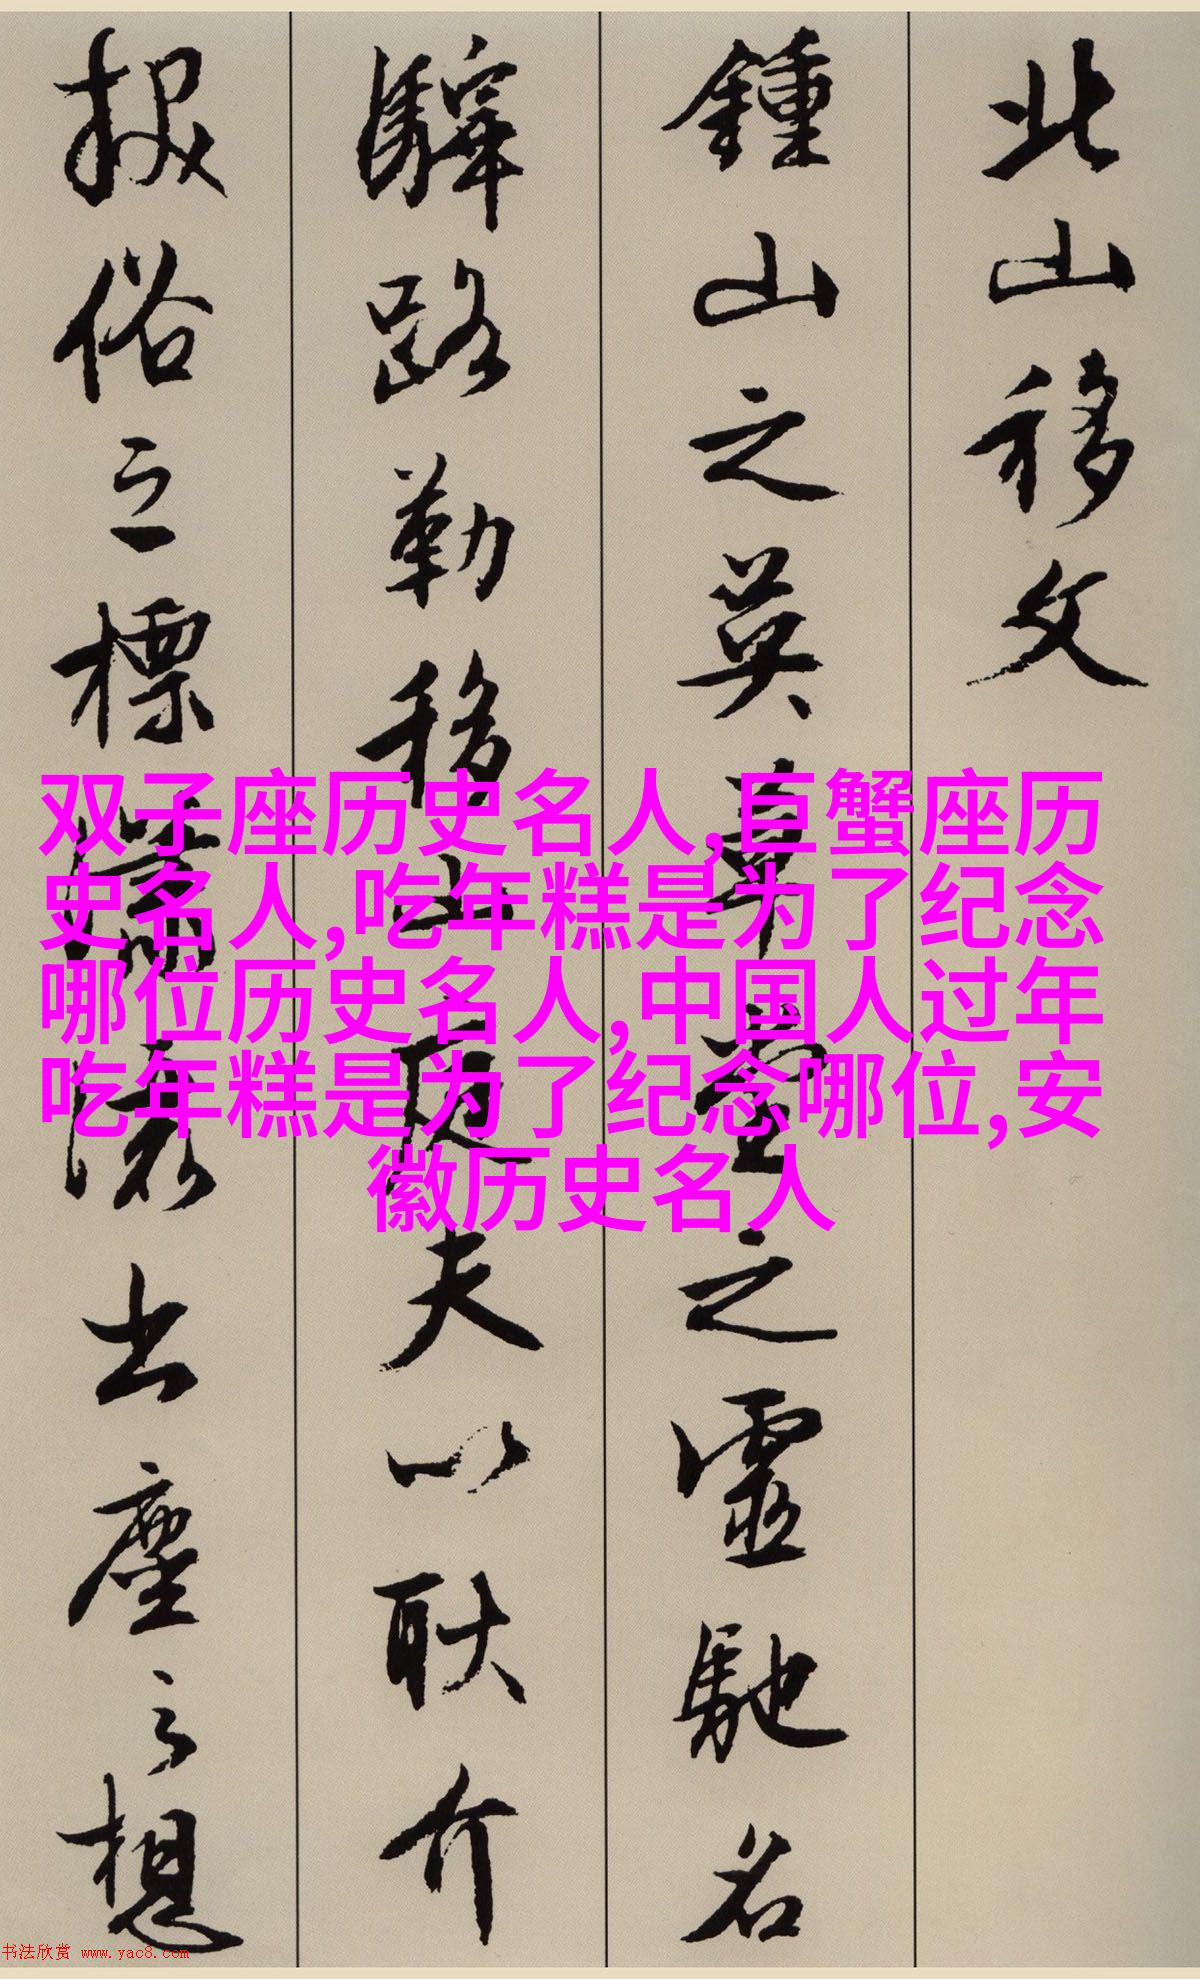 北山移文
鍾山之英草堂之靈馳名
驛路勒移山庭夫以耿介
拔俗之標瀟灑出塵之想
双子座历史名人,巨蟹座历
史名人,吃年糕是为了纪念
哪位历史名人,中国人过年
吃年糕是为了纪念哪位,安
徽历史名人
书法欣赏 www.yac8.com